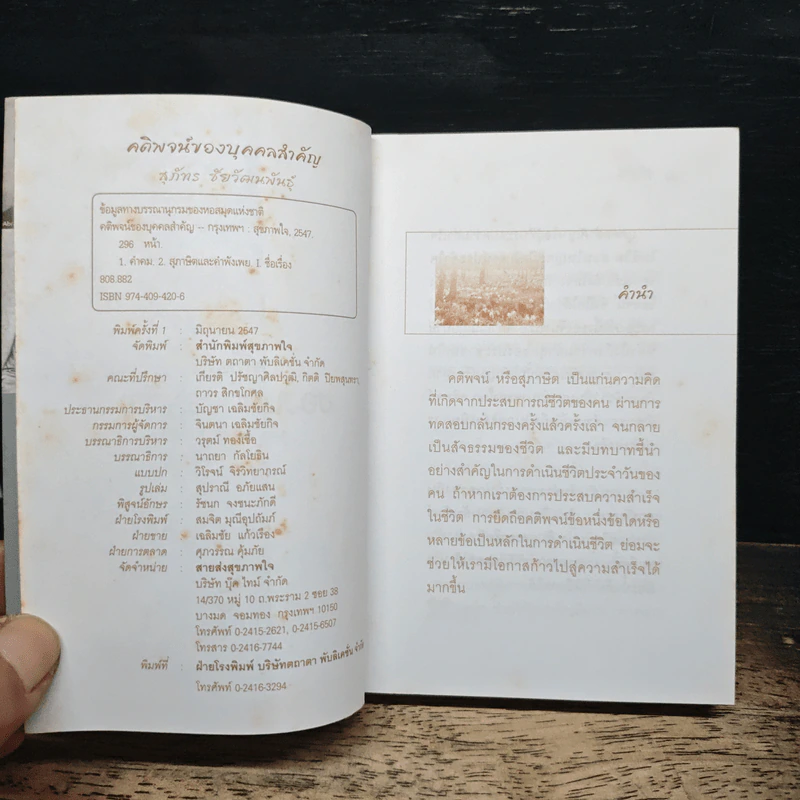 คติพจน์ของบุคคลสำคัญ
สุภัทร ชัยวัฒนพันธุ์
ข้อมูลทางบรรณานุกรมของหอสมุดแห่งชาติ
คติพจน์ของบุคคลสำคัญ -- กรุงเทพฯ : สุขภาพใจ, 2547.
296 หน้า.
1. คำคม. 2. สุภาษิตและคำพังเพย. I. ชื่อเรื่อง
808.882
ISBN 974-409-420-6
พิมพ์ครั้งที่ 1 : มิถุนายน 2547
จัดพิมพ์ : สำนักพิมพ์สุขภาพใจ
บริษัท ตถาตา พับลิเคชั่น จำกัด
คณะที่ปรึกษา : เกียรติ ปรัชญาศิลปวุฒิ, กิตติ ปิยพสุนทรา,
ถาวร สิกขโกศล
ประธานกรรมการบริหาร : บัญชา เฉลิมชัยกิจ
กรรมการผู้จัดการ : จินตนา เฉลิมชัยกิจ
บรรณาธิการบริหาร : วรุตม์ ทองเชื้อ
บรรณาธิการ : นาถยา กัลโยธิน
แบบปก : วิโรจน์ จิรวิทยาภรณ์
รูปเล่ม : สุปราณี อภัยแสน
พิสูจน์อักษร : รัชนก จงชนะภักดี
ฝ่ายโรงพิมพ์ : สมจิต มุณีอุปถัมภ์
ฝ่ายขาย : เฉลิมชัย แก้วเรือง
ฝ่ายการตลาด : ศุภวรรณ คุ้มภัย
จัดจำหน่าย : สายส่งสุขภาพใจ
บริษัท บุ๊ค ไทม์ จำกัด
14/370 หมู่ 10 ถ.พระราม 2 ซอย 38
บางมด จอมทอง กรุงเทพฯ 10150
โทรศัพท์ 0-2415-2621, 0-2415-6507
โทรสาร 0-2416-7744
พิมพ์ที่ : ฝ่ายโรงพิมพ์ บริษัทตถาตา พับลิเคชั่น จำกัด
โทรศัพท์ 0-2416-3294
คำนำ
คติพจน์ หรือสุภาษิต เป็นแก่นความคิด
ที่เกิดจากประสบการณ์ชีวิตของคน ผ่านการ
ทดสอบกลั่นกรองครั้งแล้วครั้งเล่า จนกลาย
เป็นสัจธรรมของชีวิต และมีบทบาทชี้นำ
อย่างสำคัญในการดำเนินชีวิตประจำวันของ
คน ถ้าหากเราต้องการประสบความสำเร็จ
ในชีวิต การยึดถือคติพจน์ข้อหนึ่งข้อใดหรือ
หลายข้อเป็นหลักในการดำเนินชีวิต ย่อมจะ
ช่วยให้เรามีโอกาสก้าวไปสู่ความสำเร็จได้
มากขึ้น